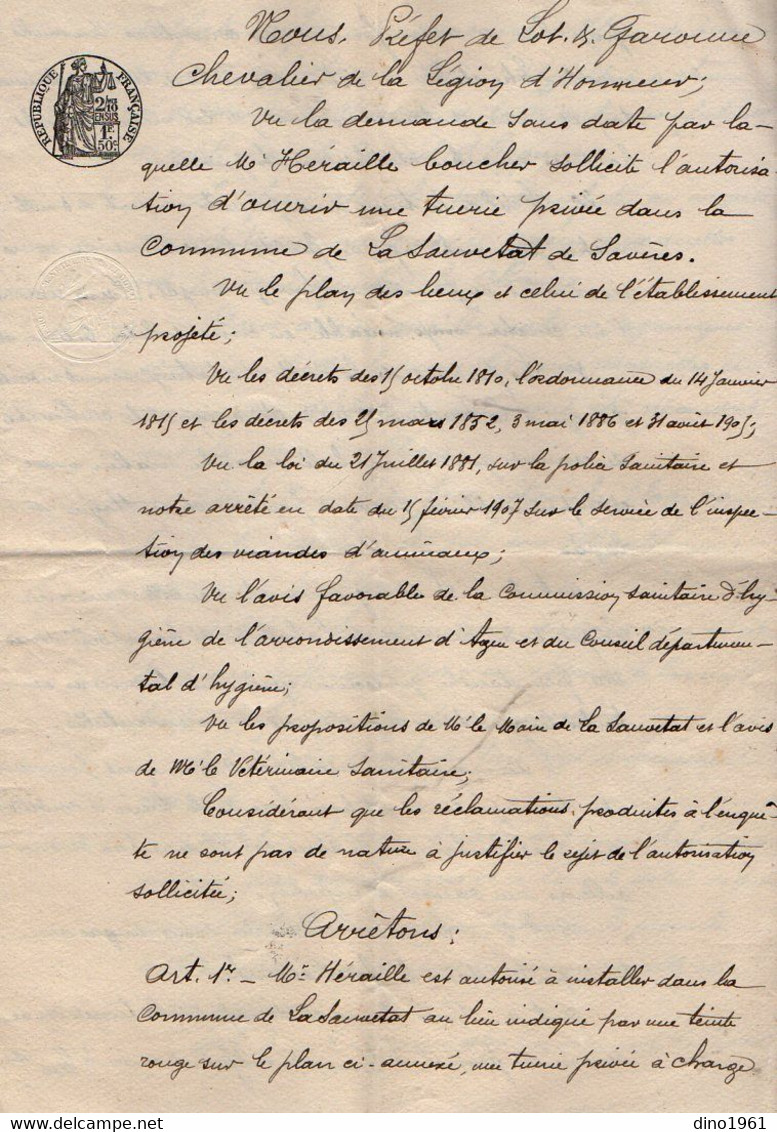 Nous, Préfet de Lot & Garonne
Chevalier de la Légion d'Honneur;
RÉPUBLIQUE FRANÇAISE
2/10
EN SUS
1F.
50c.
Vu la demande sans date par la-
quelle Mr Héraille boucher sollicite l'autorisa-
tion d'ouvrir une tuerie privée dans la
Commune de La Sauvetat de Savères.
Vu le plan des lieux et celui de l'établissement
projeté;
Vu les décrets des 15 octobre 1810, l'ordonnance du 14 Janvier
1815 et les décrets des 25 mars 1852, 3 mai 1886 et 31 août 1905;
Vu la loi du 21 Juillet 1881, sur la police sanitaire et
notre arrêté en date du 15 février 1907 sur le service de l'inspec-
tion des viandes d'animaux;
Vu l'avis favorable de la Commission sanitaire d'hy-
giène de l'arrondissement d'Agen et du Conseil départemen-
tal d'hygiène;
Vu les propositions de Mr le Maire de La Sauvetat et l'avis
de Mr le Vétérinaire sanitaire;
Considérant que les réclamations produites à l'enquê-
te ne sont pas de nature à justifier le rejet de l'autorisation
sollicitée;
Arrêtons:
Art. 1er. - Mr Héraille est autorisé à installer dans la
Commune de La Sauvetat au lieu indiqué par une teinte
rouge sur le plan ci-annexé, une tuerie privée à charge
dino1961